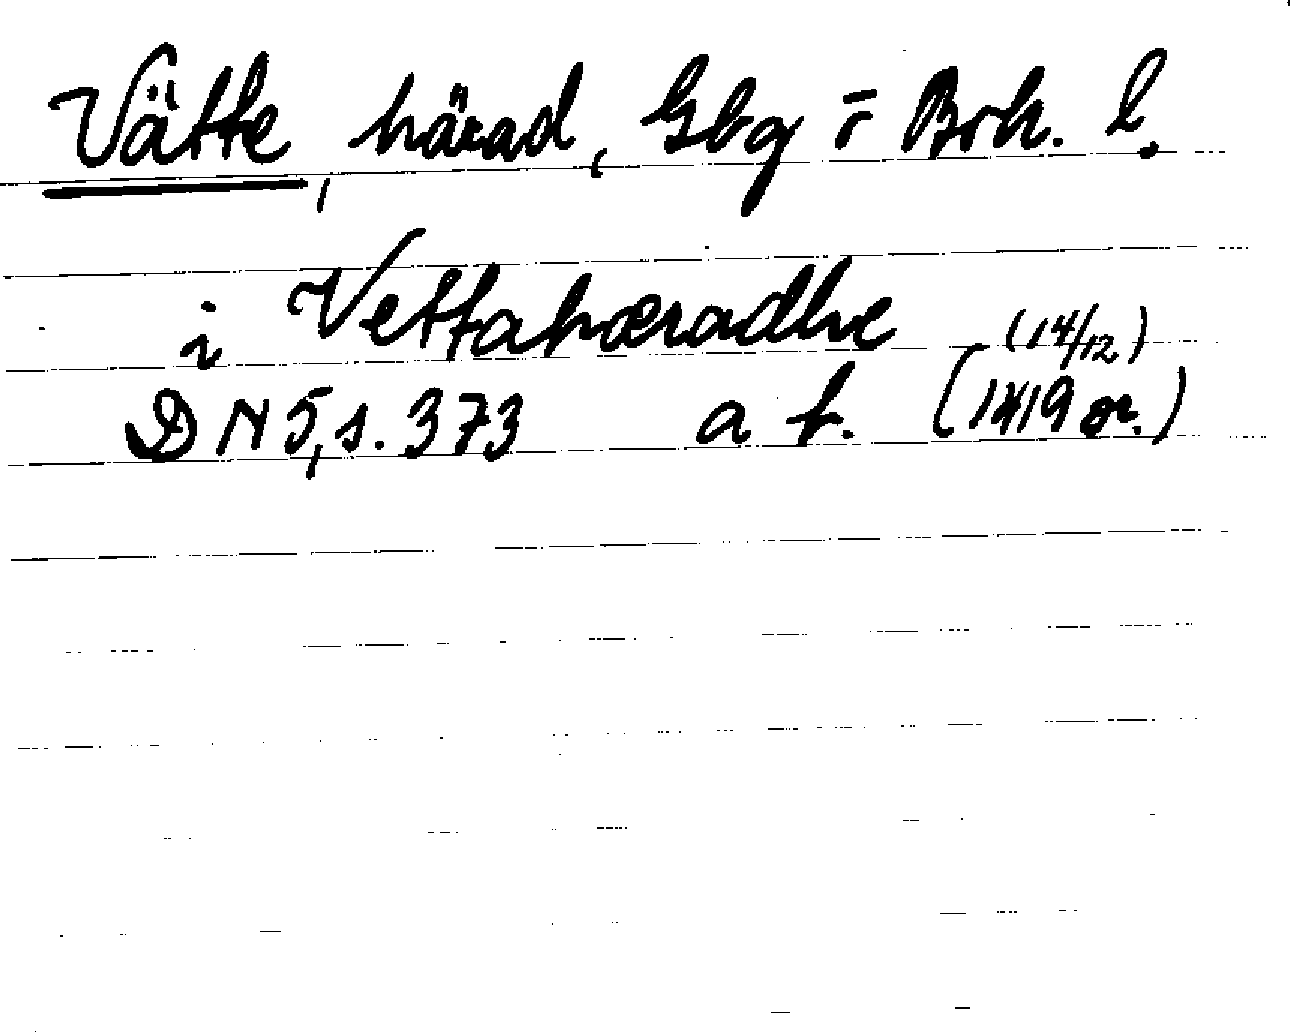 Vätte, härad, Gbg o Boh. l.
i Vettahæradhe (14/12)
DN 5, s. 373 a f. (1419 or.)